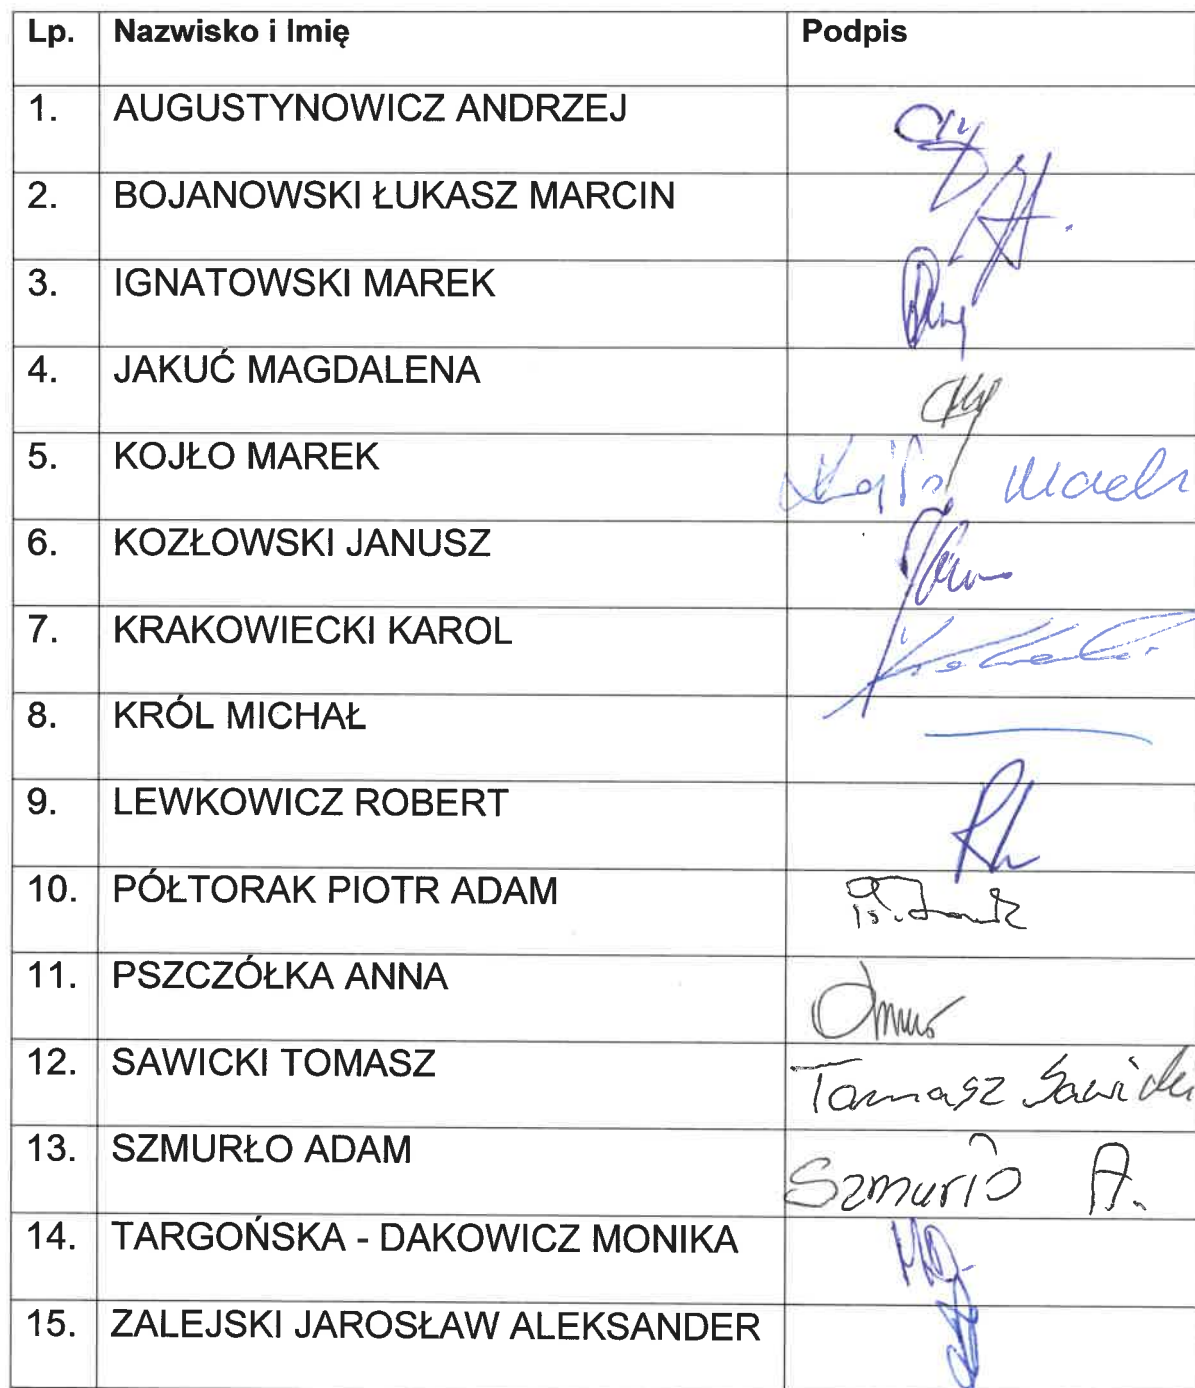 Lp. Nazwisko i Imię Podpis
1. AUGUSTYNOWICZ ANDRZEJ
2. BOJANOWSKI ŁUKASZ MARCIN
3. IGNATOWSKI MAREK
4. JAKUĆ MAGDALENA
5. KOJŁO MAREK Kojło Marek
6. KOZŁOWSKI JANUSZ
7. KRAKOWIECKI KAROL
8. KRÓL MICHAŁ
9. LEWKOWICZ ROBERT
10. PÓŁTORAK PIOTR ADAM
11. PSZCZÓŁKA ANNA
12. SAWICKI TOMASZ Tomasz Sawicki
13. SZMURŁO ADAM Szmurło A.
14. TARGOŃSKA - DAKOWICZ MONIKA
15. ZALEJSKI JAROSŁAW ALEKSANDER